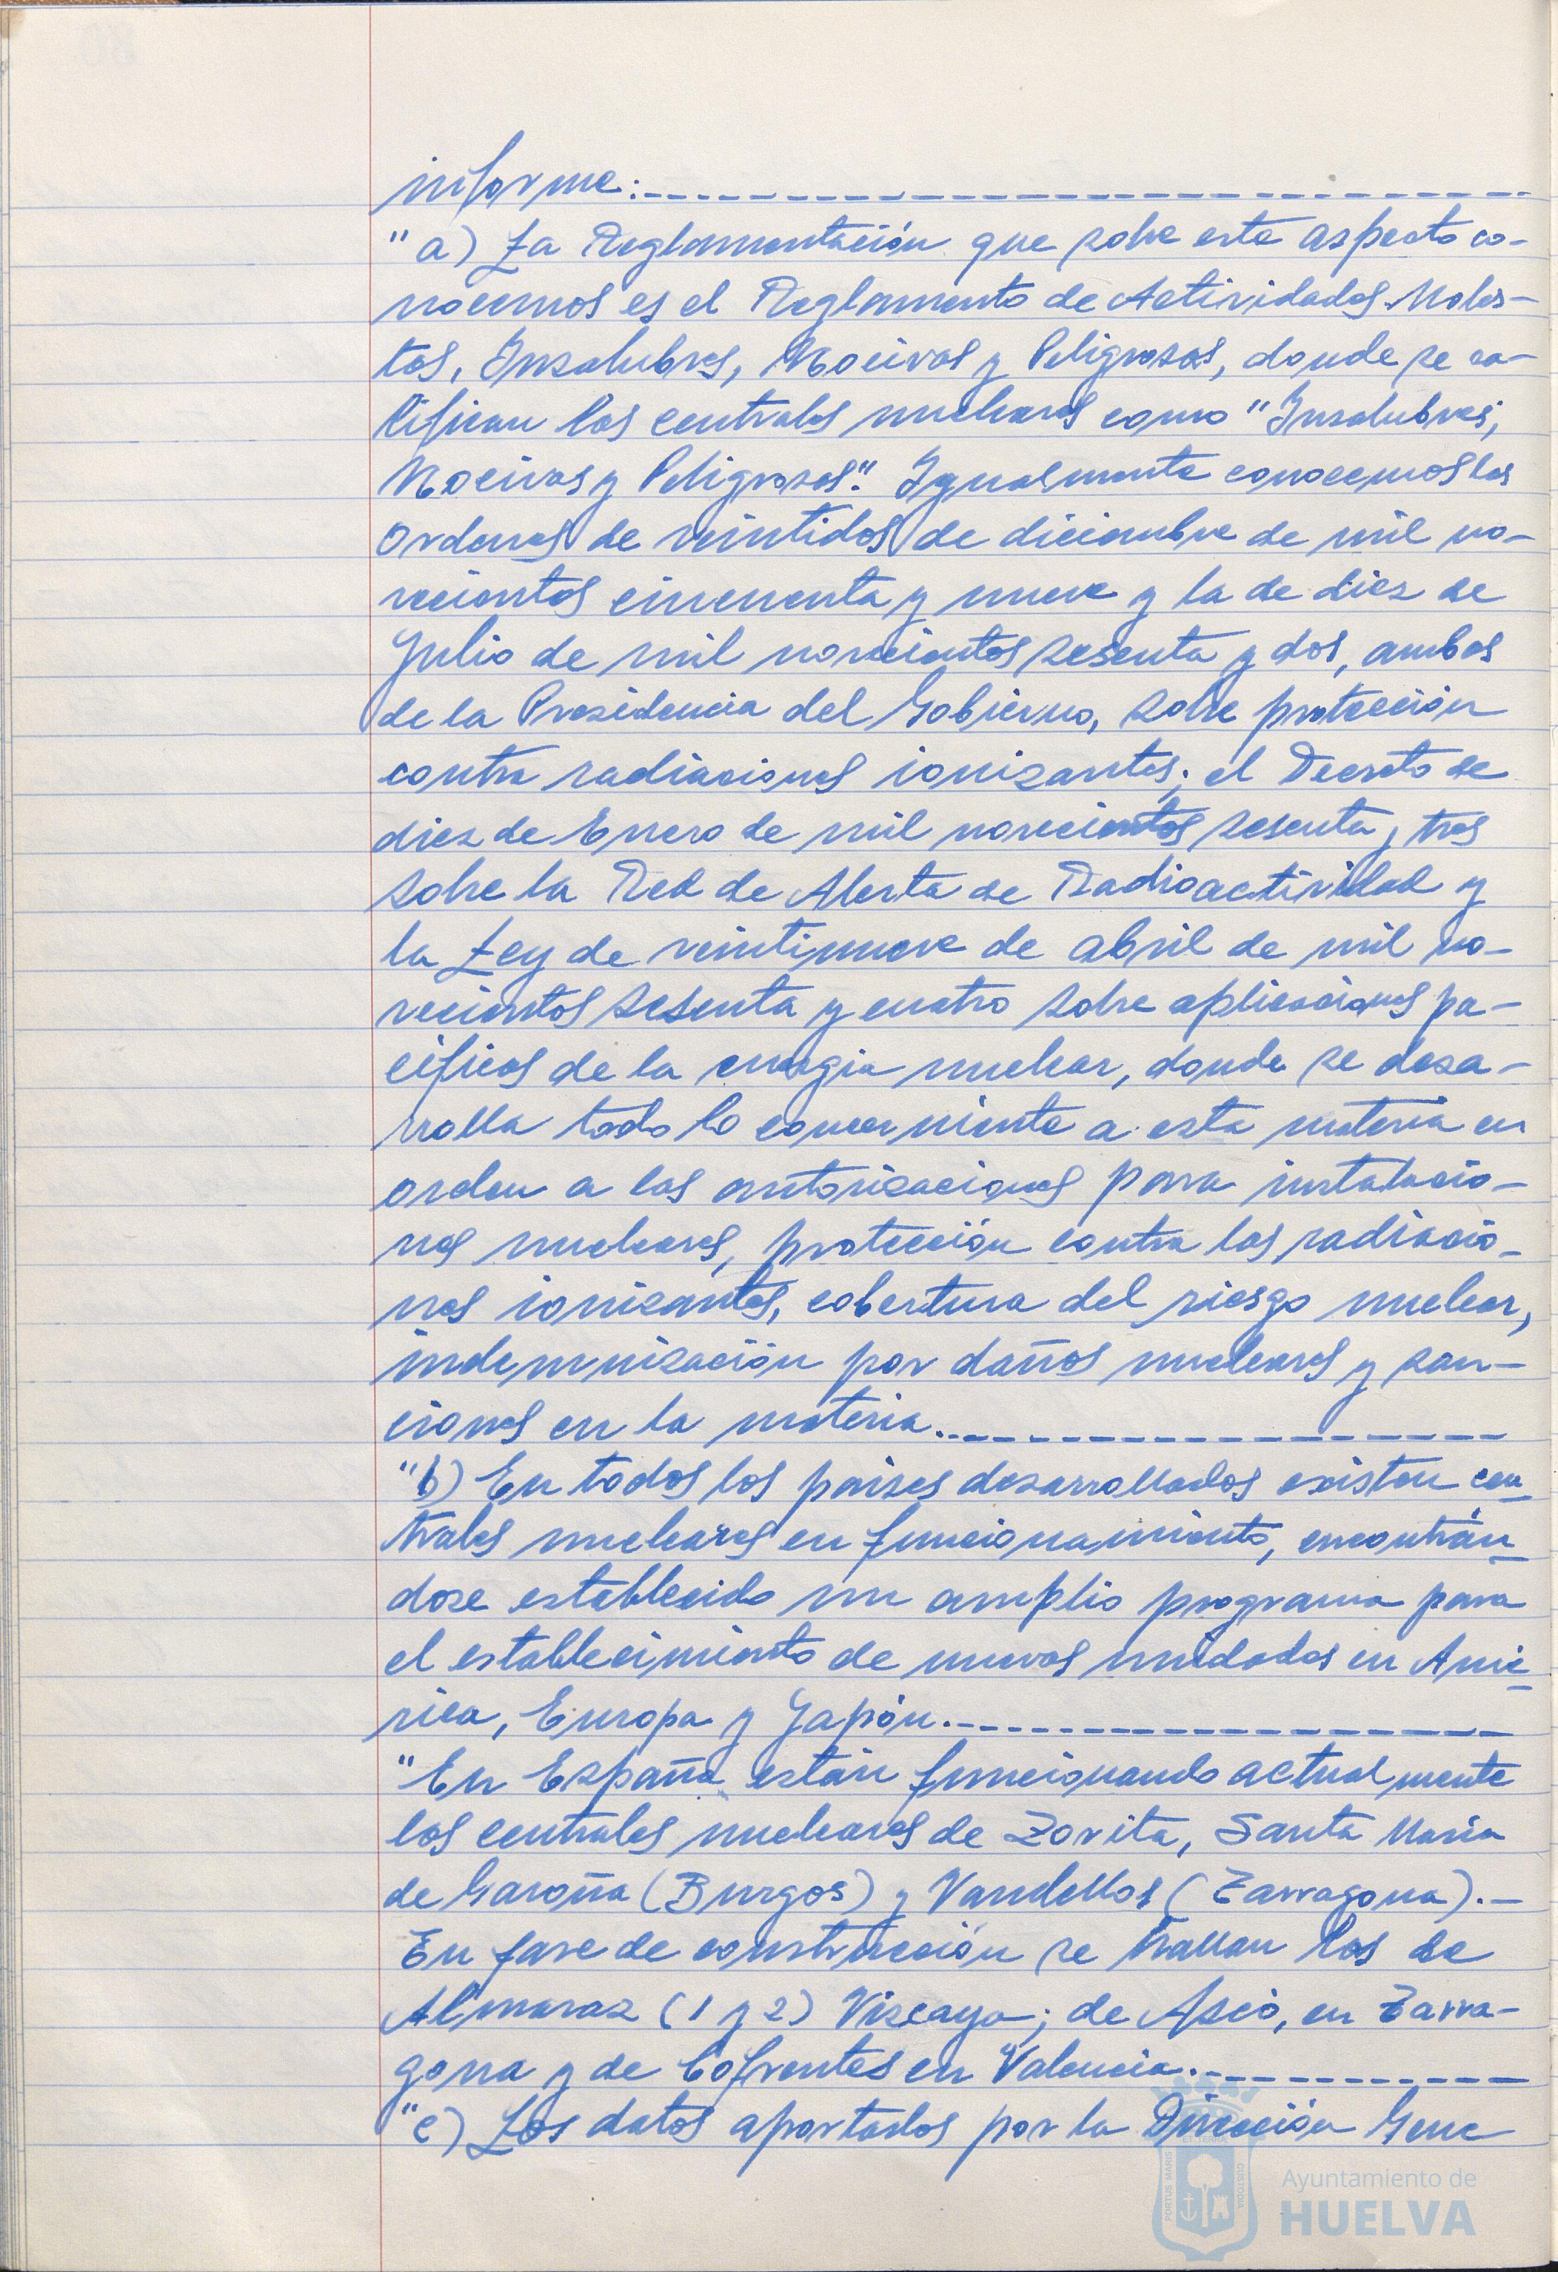 informe:
"a) La Reglamentación que sobre este aspecto co-
nocemos es el Reglamento de Actividades Moles-
tas, Insalubres, Nocivas y Peligrosas, donde se ca-
lifican las centrales nucleares como "Insalubres,
Nocivas y Peligrosas". Igualmente conocemos las
Ordenes de veintidos de diciembre de mil no-
vecientos cincuenta y nueve y la de diez de
Julio de mil novecientos sesenta y dos, ambas
de la Presidencia del Gobierno, sobre protección
contra radiaciones ionizantes; el Decreto de
diez de Enero de mil novecientos sesenta y tres
sobre la Red de Alerta de Radioactividad y
la Ley de veintinueve de abril de mil no-
vecientos sesenta y cuatro sobre aplicaciones pa-
cíficas de la energia nuclear, donde se desa-
rrolla todo lo concerniente a esta materia en
orden a las autorizaciones para instalacio-
nes nucleares, protección contra las radiacio-
nes ionizantes, cobertura del riesgo nuclear,
indemnización por daños nucleares y san-
ciones en la materia.
"b) En todos los paises desarrollados existen cen-
trales nucleares en funcionamiento, encontrán-
dose establecido un amplio programa para
el establecimiento de nuevas unidades en Amé-
rica, Europa y Japón.
"En España están funcionando actualmente
las centrales nucleares de Zorita, Santa María
de Garoña (Burgos) y Vandellos (Tarragona).-
En fase de construcción se hallan las de
Almaraz (1 y 2) Vizcaya; de Ascó, en Tarra-
gona y de Cofrentes en Valencia.
"c) Los datos aportados por la Dirección Gene
PORTUS MARIS
CUSTODIA
Ayuntamiento de
HUELVA